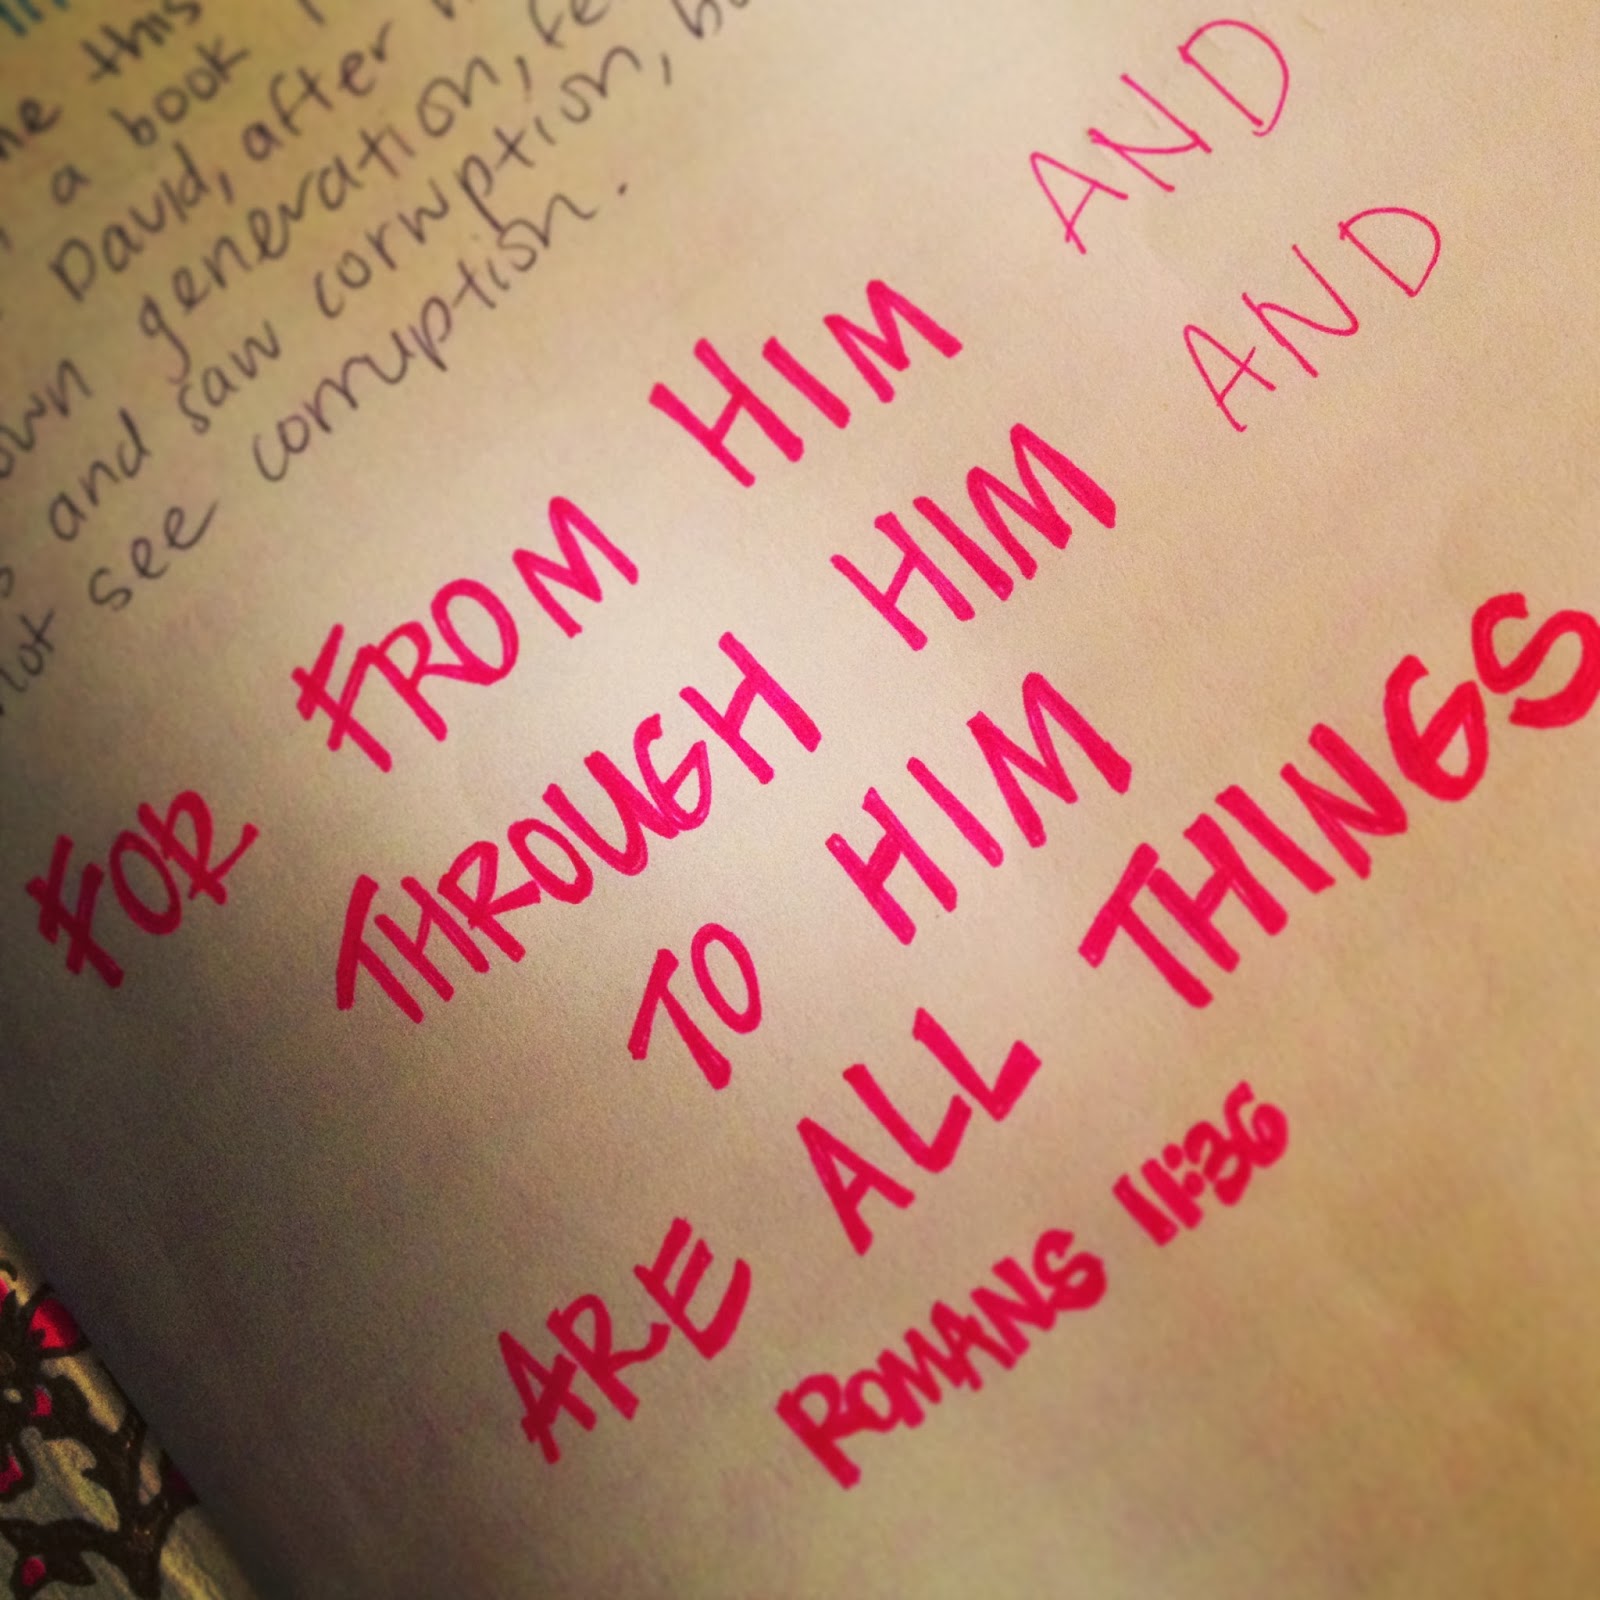 this
a book
David, after
own generation,
and saw corruption,
not see corruption.
FOR FROM HIM AND
THROUGH HIM AND
TO HIM
ARE ALL THINGS
ROMANS 11:36